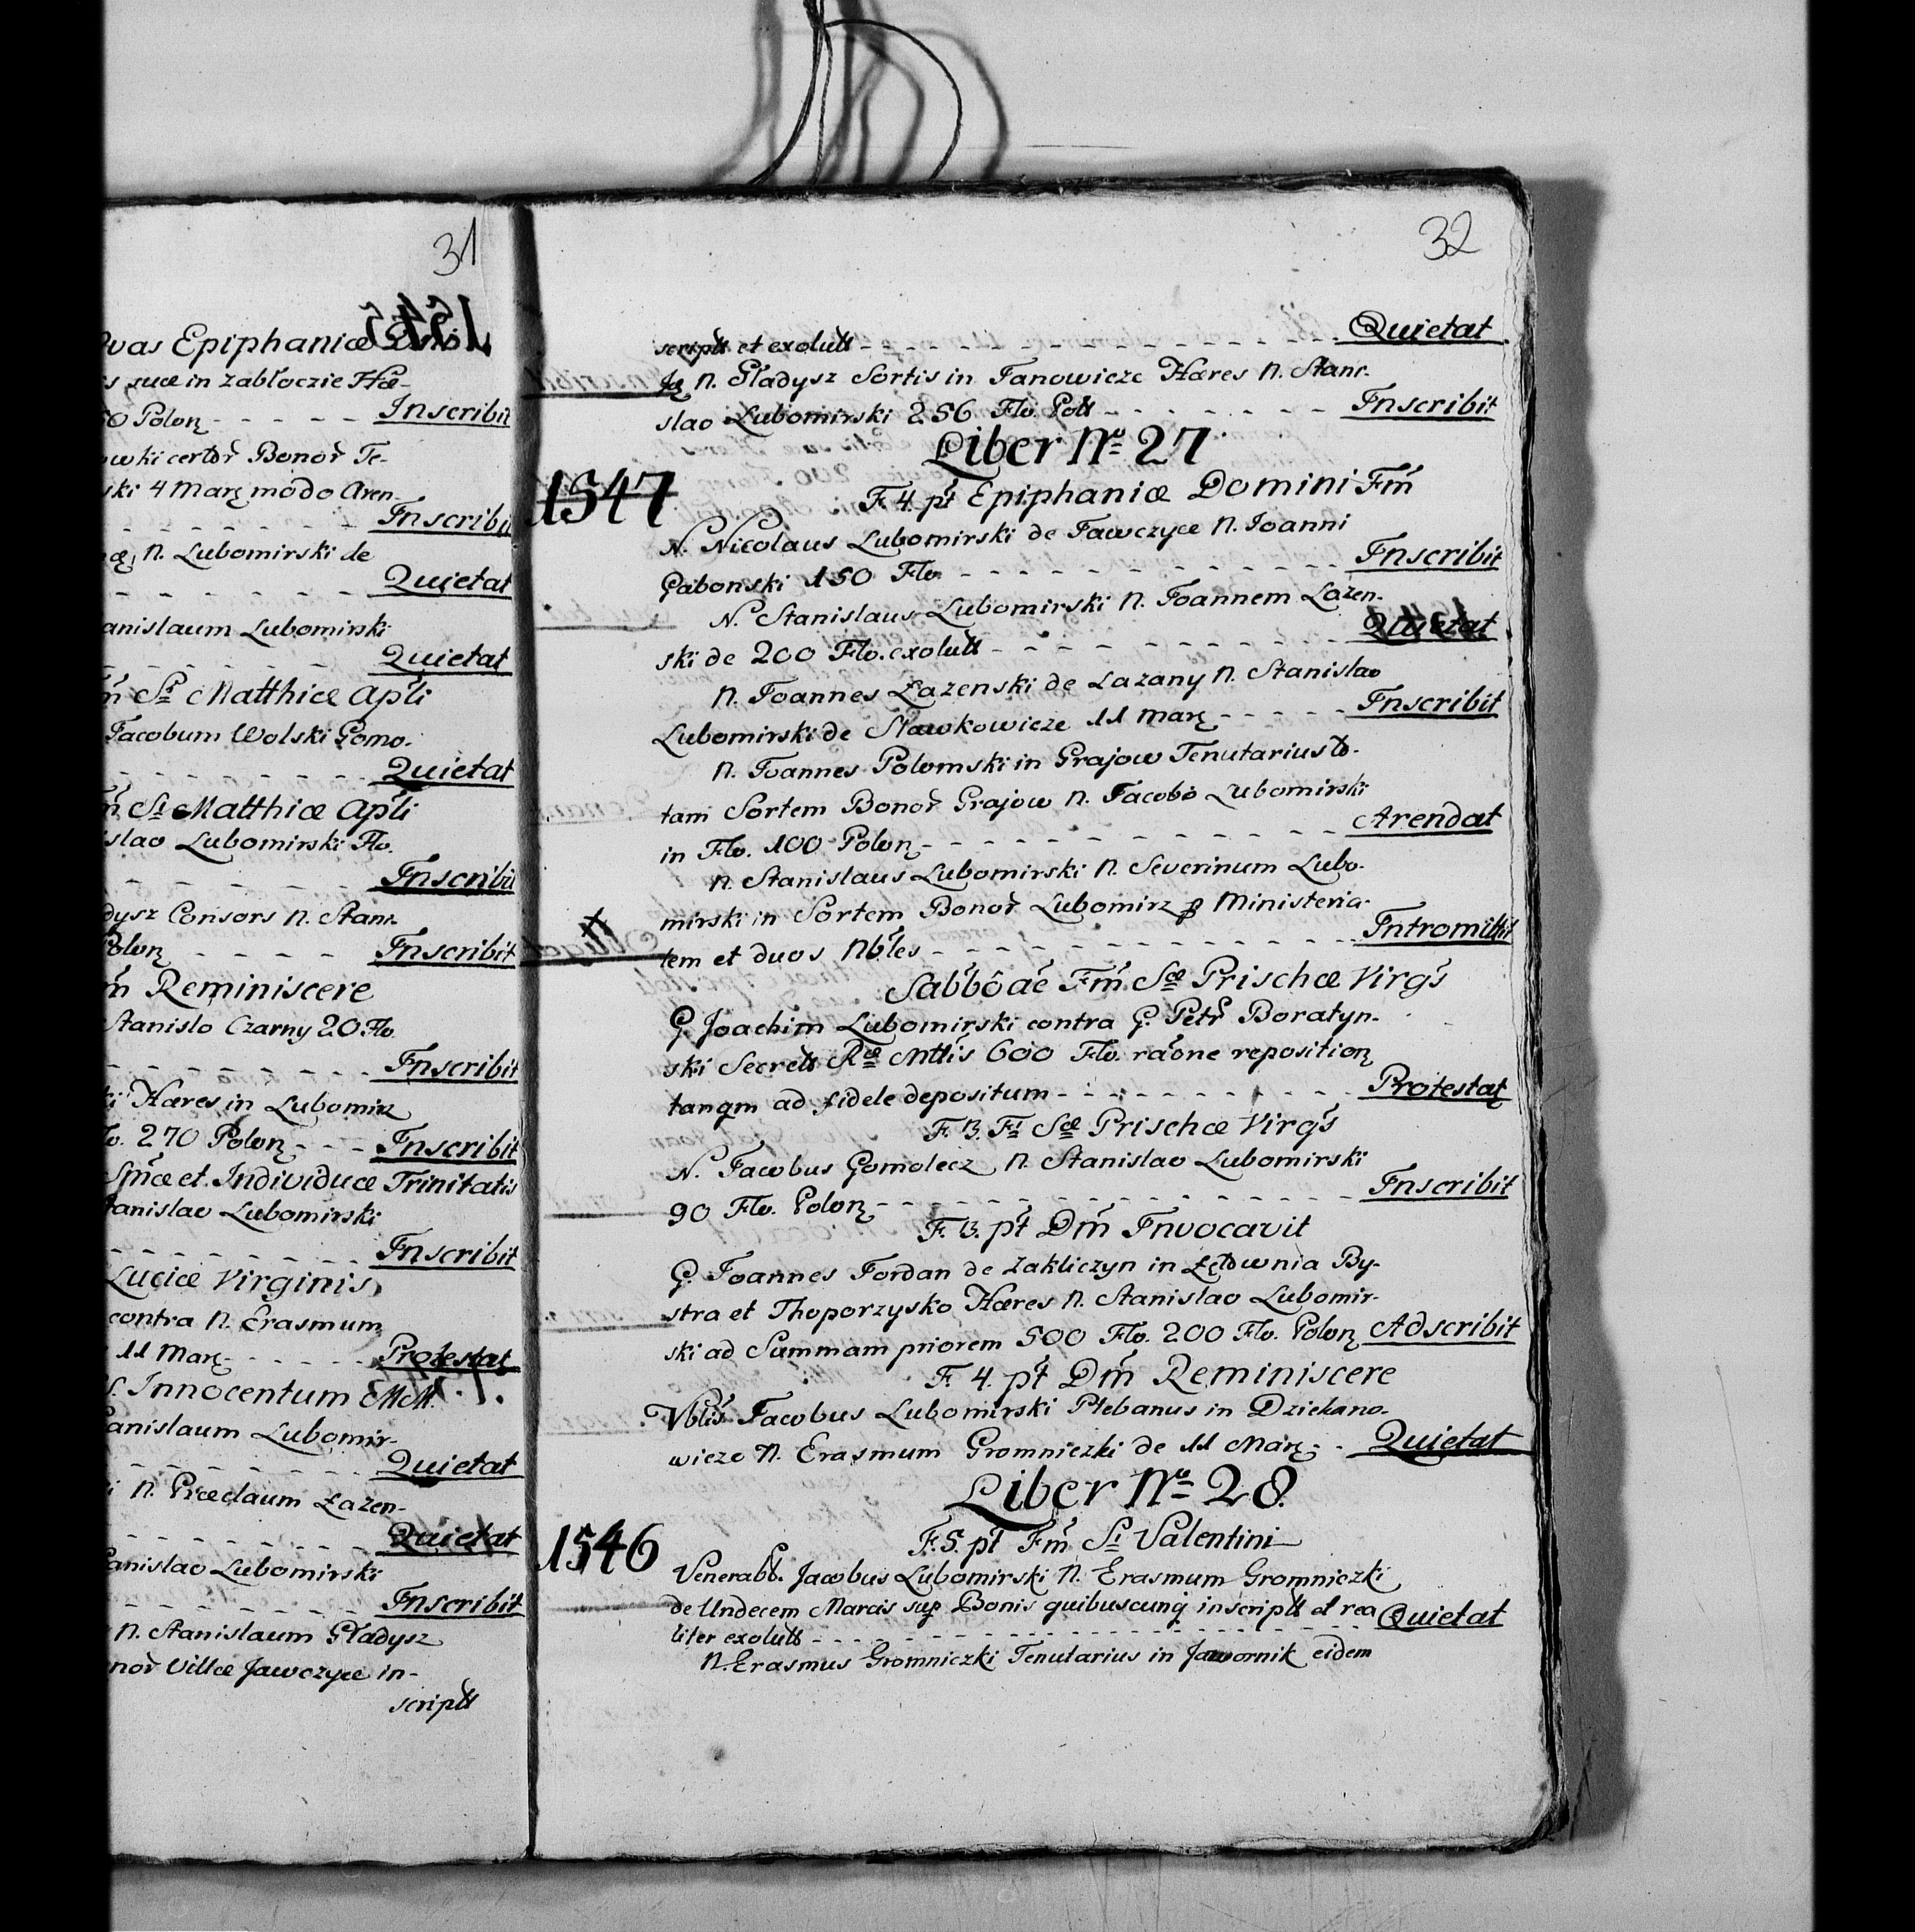 31
vas Epiphaniæ Dni
s suæ in Zabłoczie Hæ-
50 Polon - - - - - Inscribit
owki certor̃ Bonor̃ Te-
ski 4 Marc modo Aren-
- - - - - - - - Inscribit
N. Lubomirski de
- - - - - - - - Quietat
anislaum Lubomirski
- - - - - - - - Quietat
m̃ Sti Matthiæ Apli
Jacobum Wolski Gomo-
- - - - - - - - Quietat
m̃ Sti Matthiæ Apli
islao Lubomirski Flo.
- - - - - - - - Inscribit
dysz Consors N. Stani-
Polon - - - - - Inscribit
m̃ Reminiscere
Stanislo Czarny 20. Flo.
- - - - - - - - Inscribit
ki Hæres in Lubomirz
o. 270 Polon - - - Inscribit
Smæ et Individuæ Trinitatis
tanislao Lubomirski
- - - - - - - - Inscribit
Luciæ Virginis
contra N. Erasmum
11 Marc - - - - - Protestat
S. Innocentum MM.
anislaum Lubomir-
- - - - - - - - Quietat
i N. Præclaum Łazen-
- - - - - - - - Quietat
anislao Lubomirski
- - - - - - - - Inscribit
N. Stanislaum Gładysz
nor̃ Villæ Jawczyce in-
scriptt
32
scriptt et exolutt - - - - - - - - - - Quietat
N. Gładysz Sortis in Janowicze Hæres N. Stani-
slao Lubomirski 256 Flo. Poll - - - - - - - Inscribit
Liber No 27
1547
F. 4. pt Epiphaniæ Domini Fm̃
N. Nicolaus Lubomirski de Jawczyce N. Joanni
Gabonski 150 Flo. - - - - - - - - - - Inscribit
N. Stanislaus Lubomirski N. Joannem Lazen-
ski de 200 Flo. exolutt - - - - - - - - - Quietat
N. Joannes Łazenski de Lazany N. Stanislao
Lubomirski de Sławkowicze 11 Marc - - - - - Inscribit
N. Joannes Polomski in Grajow Tenutarius to-
tam Sortem Bonor̃ Grajow N. Jacobo Lubomirski
in Flo. 100 Polon - - - - - - - - - - Arendat
N. Stanislaus Lubomirski N. Severinum Lubo-
mirski in Sortem Bonor̃ Lubomirz p Ministeria-
lem et duos Nbles - - - - - - - - - - Intromittit
Sabbô aẽ Fm̃ Scæ Priscæ Virgs
G. Joachim Lubomirski contra G. Petr̃ Boratyn-
ski Secrett Ræ Mttis 600 Flo. raõne reposition
tanqm ad fidele depositum - - - - - - - - Protestat
F. 3. Ft Scæ Prischæ Virgs
N. Jacobus Gomolecz N. Stanislao Lubomirski
90 Flo. Polon - - - - - - - - - - - - Inscribit
F. 3. pt Dm̃ Invocavit
G. Joannes Jordan de Zakliczyn in Łętownia By-
stra et Thoporzysko Hæres N. Stanislao Lubomir-
ski ad Summam priorem 500 Flo. 200 Flo. Polon Adscribit
F. 4. pt Dm̃ Reminiscere
Vblis Jacobus Lubomirski Plebanus in Dziekano-
wicze N. Erasmum Gromniczki de 11 Marc - - Quietat
Liber No 28.
1546
F. 5. pt Fm̃ Sti Valentini
Venerabb. Jacobus Lubomirski N. Erasmum Gromniczki
de Undecem Marcis sup Bonis quibuscunq inscriptt et rea Quietat
liter exolutt - - - - - - - - - - - -
N. Erasmus Gromniczki Tenutarius in Jawornik eidem